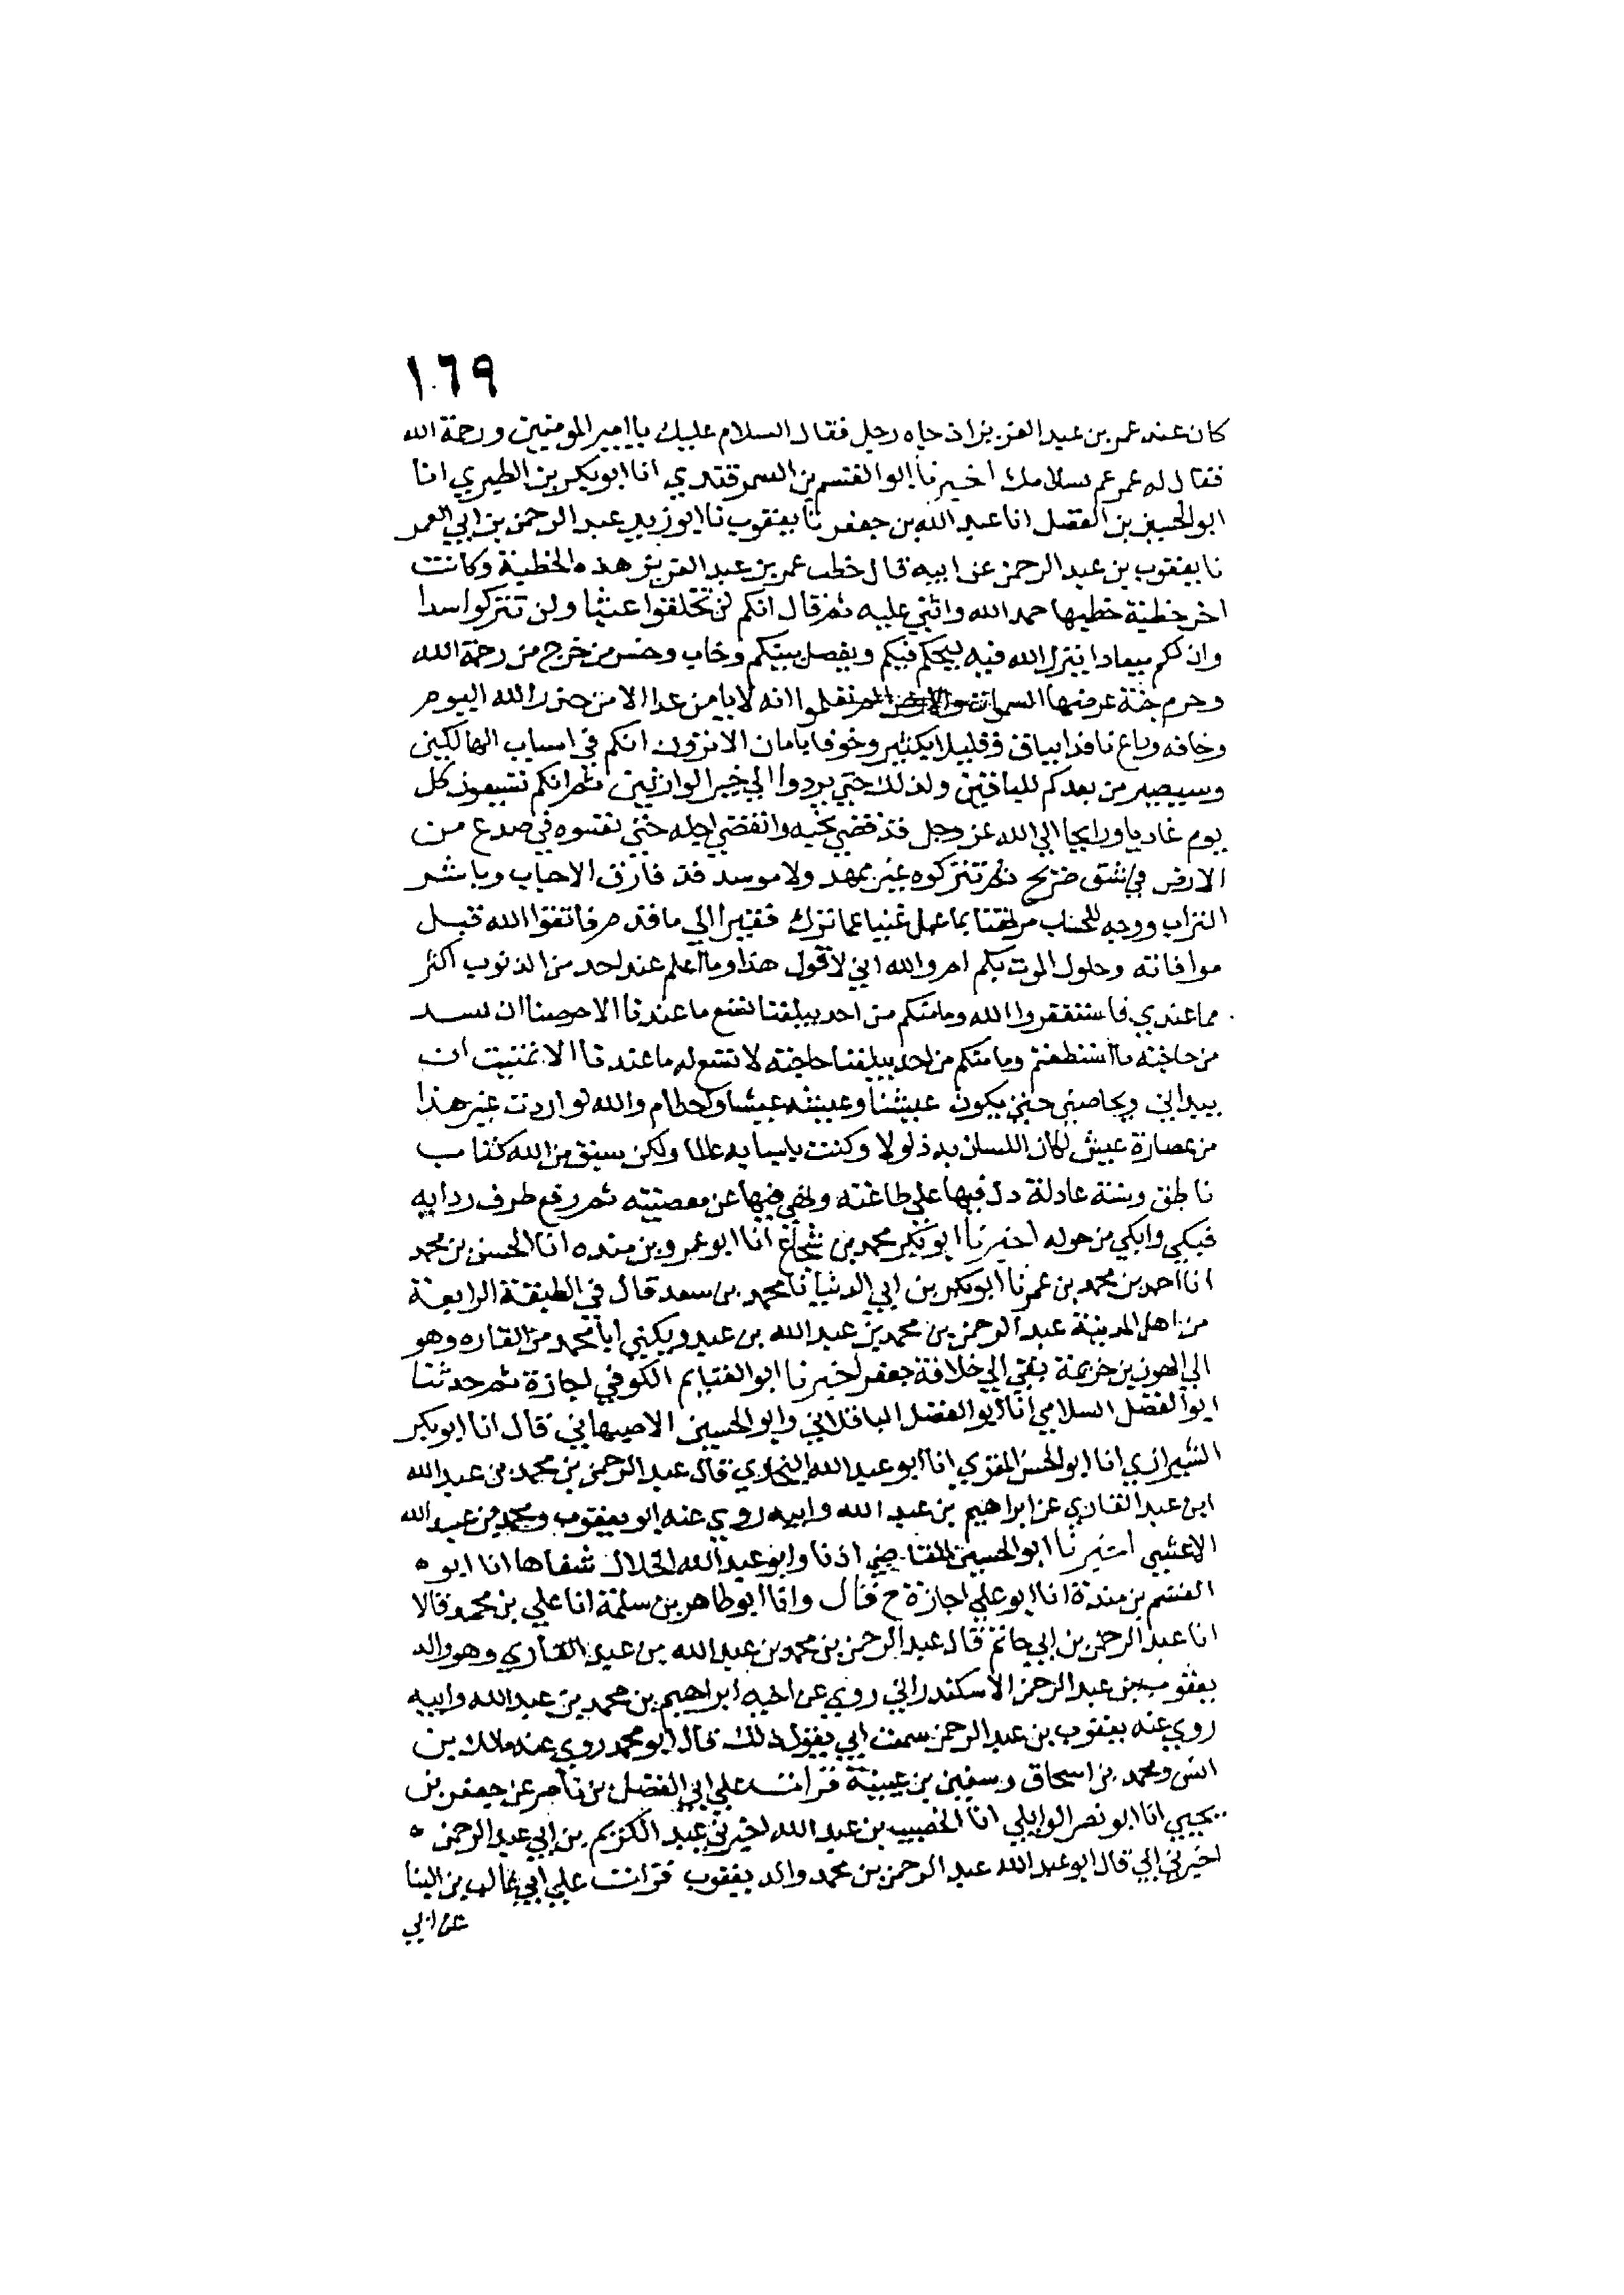 ١٠٦٩
كان عند عمر بن عبد العزيز اذ جاه رجل فقال السلام عليك يا امير المومنين ورحمة الله
فقال له عمر عم بسلامك اخبرنا ابو القسم بن السمرقندي انا ابو بكر بن الطبري انا
ابو الحسين بن الفضل انا عبد الله بن جعفر نا يعقوب نا ابو زيد عبد الرحمن بن ابي الغمر
نا يعقوب بن عبد الرحمن عن ابيه قال خطب عمر بن عبد العزيز هذه الخطبة وكانت
اخر خطبة خطبها حمد الله واثني عليه ثم قال انكم لن تخلقوا عبثا ولن تتركوا سدا
وان لكم ميعادا ينزل الله فيه ليحكم فيكم ويفصل بينكم وخاب وخسر من خرج من رحمة الله
وحرم جنة عرضها السموات والارض الم تعلموا انه لا يامن غدا الا من حذر الله اليوم
وخافه وباع نافدا بباق وقليلا بكثير وخوفا بامان الا ترون انكم في اسباب الهالكين
وسيصير من بعدكم للباقين ولذلك حتي يردوا الي خير الوارثين ثم انكم تشيعون كل
يوم غاديا ورايحا الي الله عز وجل قد قضي نحبه وانقضي اجله حتي تغيبوه في صدع من
الارض في شق ضريح ثم تتركوه غير ممهد ولا موسد قد فارق الاحباب وباشر
التراب ووجه للحساب مرتهنا بما عمل غنيا عما ترك فقيرا الي ما قدم فاتقوا الله قبل
موافاته وحلول الموت بكم ام والله اني لاقول هذا وما اعلم عند احد من الذنوب اكثر
مما عندي فاستغفروا الله وما منكم من احد يبلغنا تسع ما عندنا الا حرصنا ان نسد
من حاجته ما استطعتم وما منكم من احد يبلغنا حاجته لا تتسع له ما عندنا الا تمنيت ان
يبدا بي وبخاصتي حتي يكون عيشنا وعيشه عيشا والله لو اردت غير هذا
من غضارة عيش لكان اللسان به ذلولا وكنت باسبابه عالما ولكن سبق من الله كتاب
ناطق وسنة عادلة دل فيها علي طاعته ونهي فيها عن معصيته ثم رفع طرف ردايه
فبكي وابكي من حوله اخبرنا ابو بكر محمد بن شجاع انا ابو عمرو بن منده انا الحسن بن محمد
انا احمد بن محمد بن عمر نا ابو بكر بن ابي الدنيا نا محمد بن سعد قال في الطبقة الرابعة
من اهل المدينة عبد الرحمن بن محمد بن عبد الله بن عبد ويكني ابا محمد من القاره وهو
الي الهون بن خزيمة بقي الي خلافة جعفر اخبرنا ابو الغنايم الكوفي اجازة ثم حدثنا
ابو الفضل السلامي انا ابو الفضل الباقلاني وابو الحسين الاصبهاني قال انا ابو بكر
الشيرازي انا ابو الحسن المقري انا ابو عبد الله البخاري قال عبد الرحمن بن محمد بن عبد الله
ابن عبد القاري عن ابراهيم بن عبد الله وابيه روي عنه ابو يعقوب ومحمد بن عبد الله
الاعشي اخبرنا ابو الحسين القاضي اذنا وابو عبد الله الخلال شفاها انا ابو ه
القسم بن مندة انا ابو علي اجازة ح قال وانا ابو طاهر بن سلمة انا علي بن محمد قالا
انا عبد الرحمن بن ابي حاتم قال عبد الرحمن بن محمد بن عبد الله بن عبد القاري وهو والد
يعقوب بن عبد الرحمن الاسكندراني روي عن اخيه ابراهيم بن محمد بن عبد الله وابيه
روي عنه يعقوب بن عبد الرحمن سمعت ابي يقول ذلك قال ابو محمد روي عنه مالك بن
انس ومحمد بن اسحاق وسفين بن عيينة قرات علي ابي الفضل بن ناصر عن جعفر بن
يحيي انا ابو نصر الوايلي انا الخصيب بن عبد الله اخبرني عبد الكريم بن ابي عبد الرحمن ه
اخبرني ابي قال ابو عبد الله عبد الرحمن بن محمد والد يعقوب قرات علي ابي غالب بن البنا
عن ابي